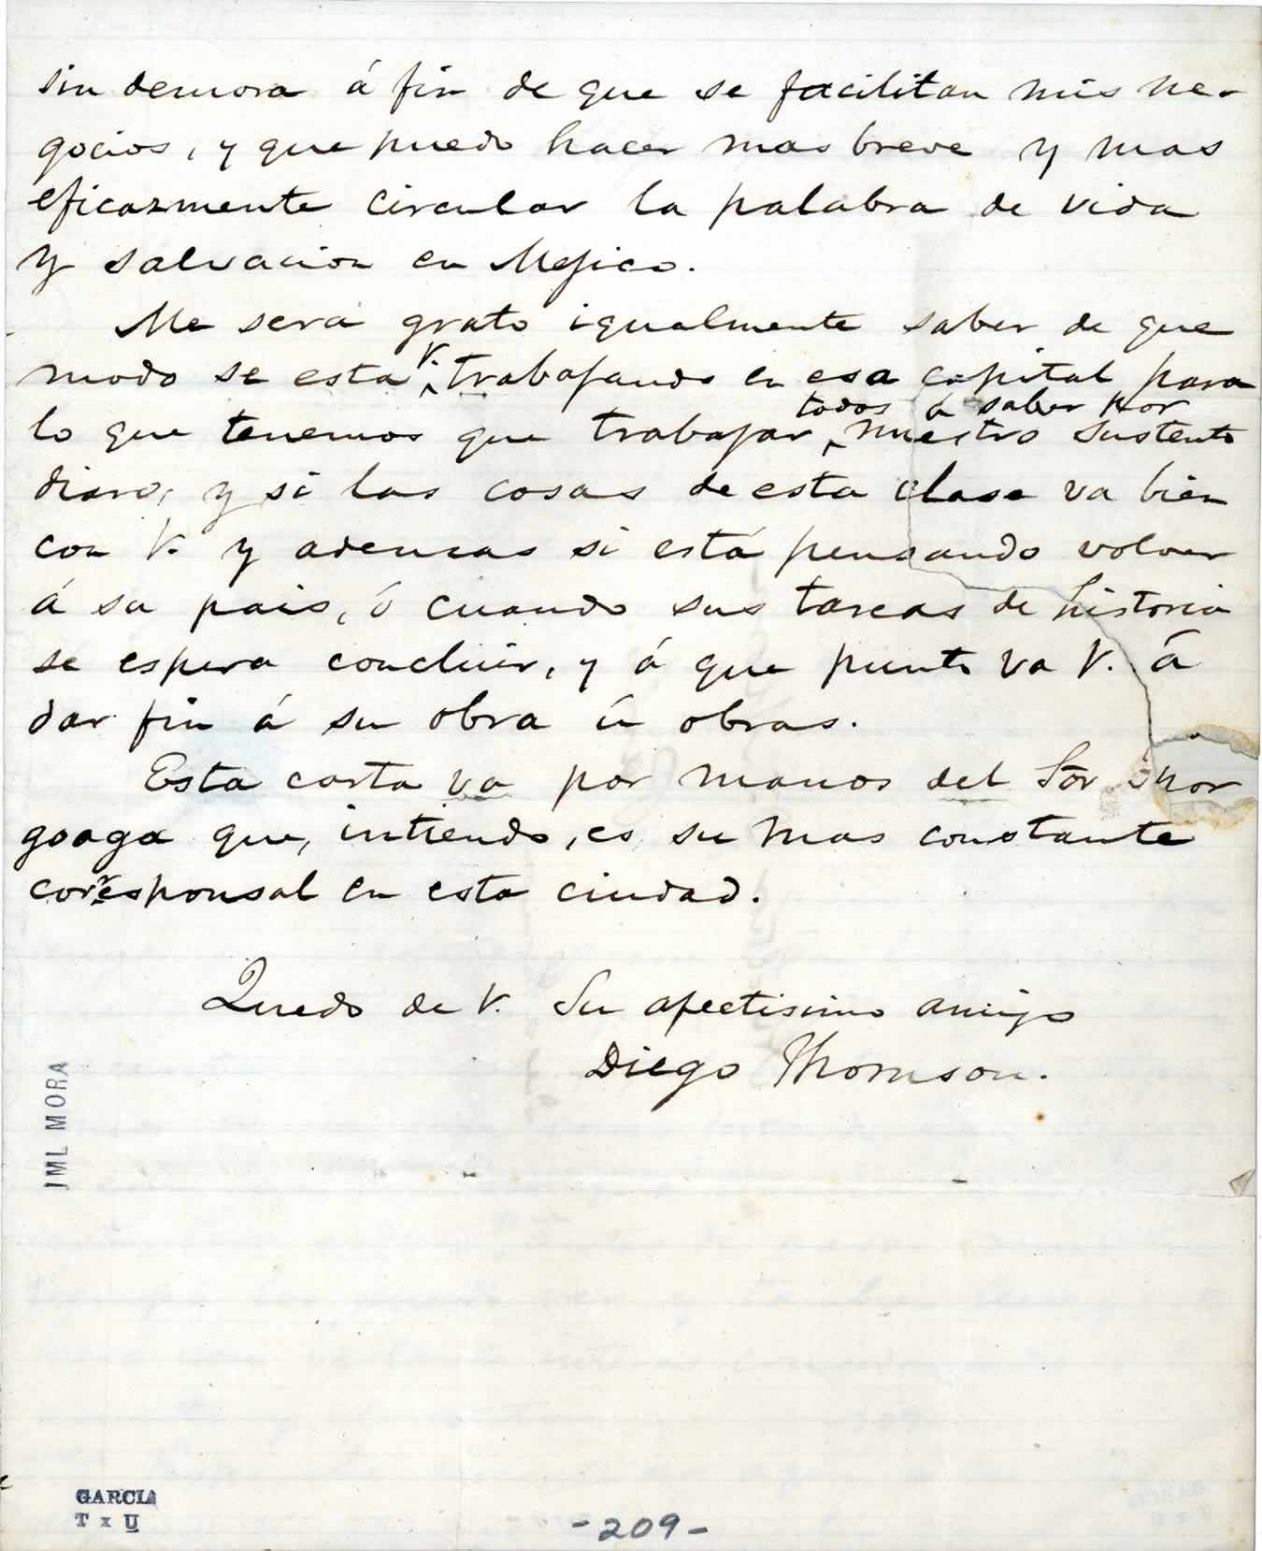 sin demora á fin de que se facilitan mis ne-
gocios, y que puedo hacer mas breve y mas
eficazmente circular la palabra de vida
y salvacion en Mejico.
Me será grato igualmente saber de que
modo se esta V. trabajando en esa capital para
lo que tenemos que trabajar todos á saber por nuestro sustento
diaro, y si las cosas de esta clase va bien
con V. y ademas si está pensando volver
á su pais, ó cuando sus tareas de historia
se espera concluir, y á que punto va V. á
dar fin á su obra ú obras.
Esta carta va por manos del Sór
goaga que, intiendo, es su mas constante
corresponsal en esta ciudad.
Quedo de V. Su afectisimo amigo
Diego Thomson.
JML MORA
GARCIA
T x U
-209-